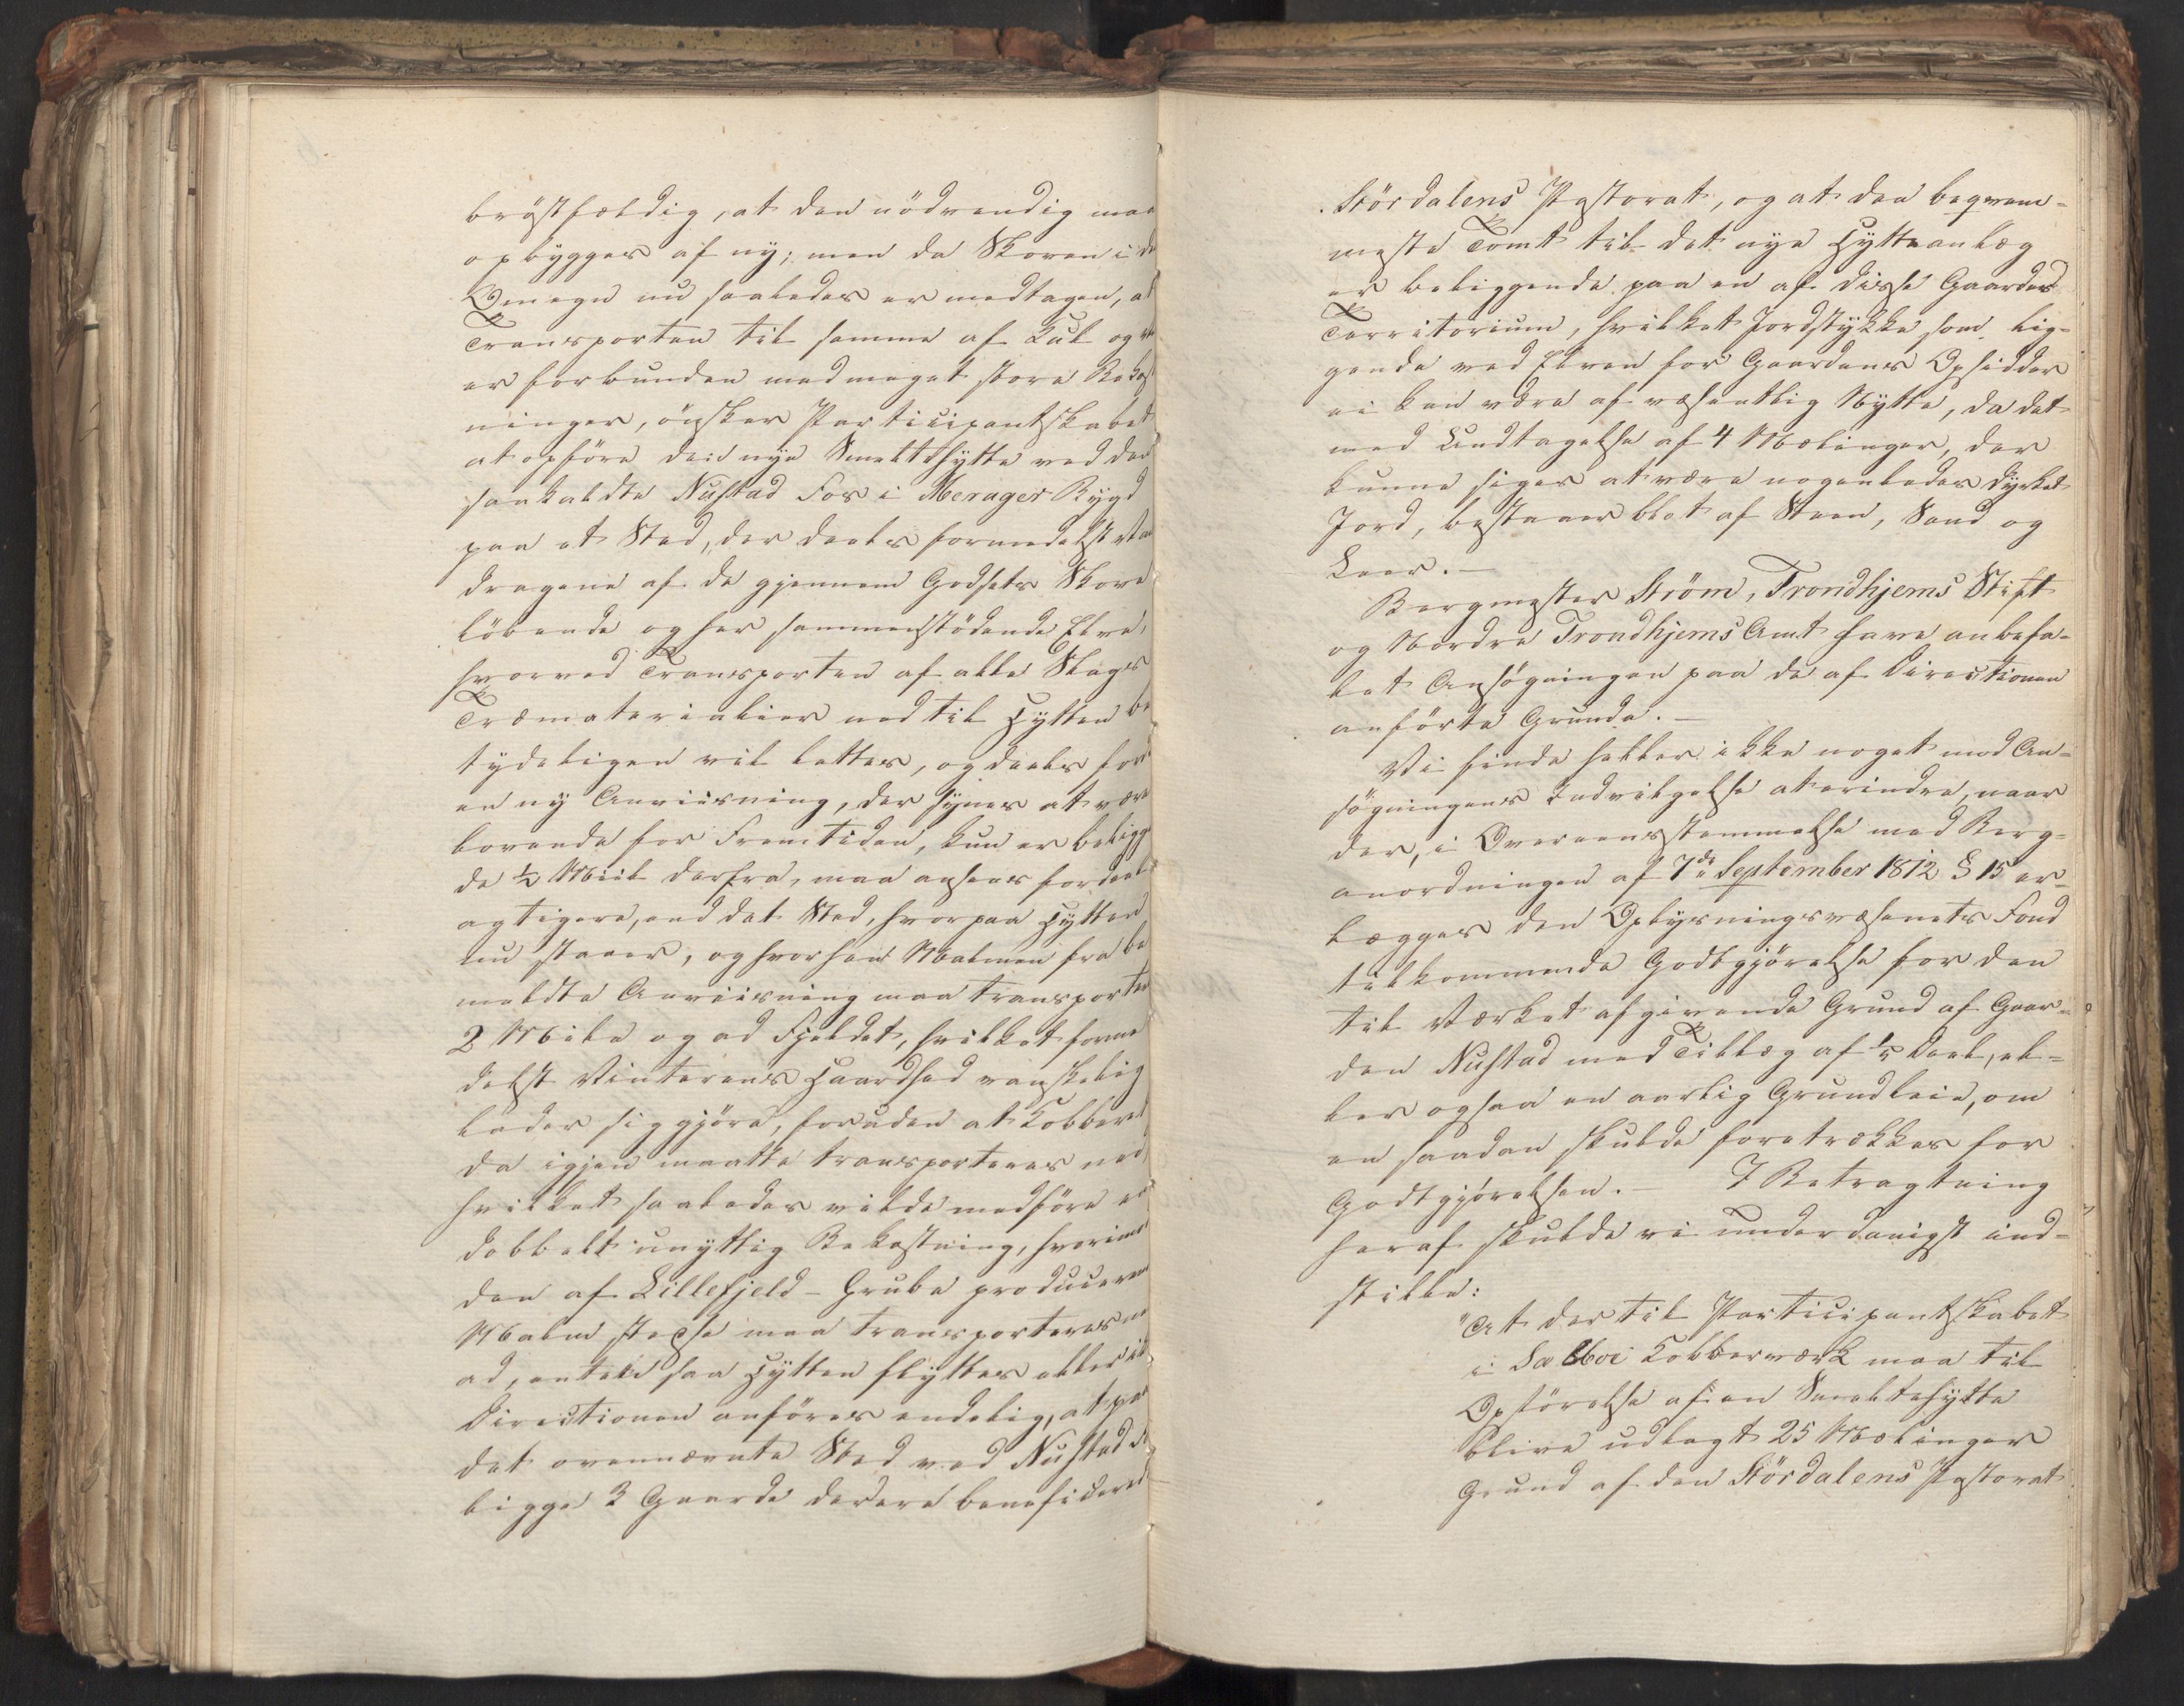 bröstfældig, at den nödvendig maa
opbygges af ny; men da Skoven i de
Omegn nu saaledes er medtagen, at
Transporten til samme af Kul og
er forbunden med meget store Bekost
ninger, önsker Participantskabet
at opföre den nye Smeltehytte ved den
saakaldte Nustad Fos i Merager Bygd
paa et Sted, der deels formedelst Van
dragene af de gjennem Godsets Skove
löbende og her sammenstödende Elve,
hvorved Transporten af alle Slags
Træmaterialier ned til Hytten be
tydeligen vil lettes, og deels fordi
en ny Anviisning, der synes at være
lovende for Fremtiden, kun er beligge
de ½ Miil derfra, maa ansees fordeel
agtigere, end det Sted, hvorpaa Hytten
nu staaer, og hvorhen Malmen fra be
meldte Anviisning maa transporte
2 Mile og ad Fjeldet, hvilket forme
delst Vinterens Haardhed vanskelig
lader sig gjöre, foruden at Kobberet
da igjen maatte transporteres ned,
hvilket saaledes vilde medföre en
dobbelt unyttig Bekostning, hvorimod
den af Lillefjeld-Grube producerende
Malm stedse maa transporteres
ad, enten saa Hytten flyttes eller ik
Directionen anföres endelig, at paa
det ovennævnte Sted ved Nustad
ligge 3 Gaarde der ere beneficeret
Stördalens Pastorat, og at den beqvem-
meste Tomt til det nye Hytteanlæg
er beliggende paa en af disse Gaardes
Territorium, hvilket Jordstykke som lig-
gende ved Elven for Gaardens Opsidder
ei kan være af væsentlig Nytte, da det
med Undtagelse af 4 Mælinger, der
kunne siges at være nogenledes dyrket
Jord, bestaaer blot af Steen, Sand og
Leer. -
Bergmester Ström, Trondhjems Stift
og Nordre Trondhjems Amt have anbefa-
let Ansögningen paa de af Directionen
anförte Grunde. -
Vi finde heller ikke noget mod An-
sögningens Indvilgelse at erindre, naar
der, i Overeensstemmelse med Berg-
anordningen af 7de September 1812 § 15 er-
lægges den Oplysningsvæsenets Fond
tilkommende Godtgjörelse for den
til Værket afgivende Grund af Gaar-
den Nustad med Tillæg af ⅓ Deel, el-
ler ogsaa en aarlig Grundleie, om
en saadan skulde foretrækkes for
Godtgjörelsen. - I Betragtning
heraf skulde vi underdanigst ind-
stille:
"At der til Participantskabet
i Selboe Kobberværk maa til
Opförelse af en Smeltehytte
blive udlagt 25 Mælinger
Grund af den Stördalens Pastorat